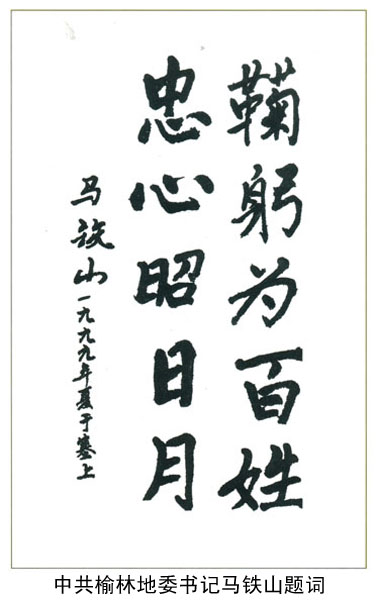 鞠躬为百姓
忠心昭日月
马铁山一九九九年夏于塞上
中共榆林地委书记马铁山题词